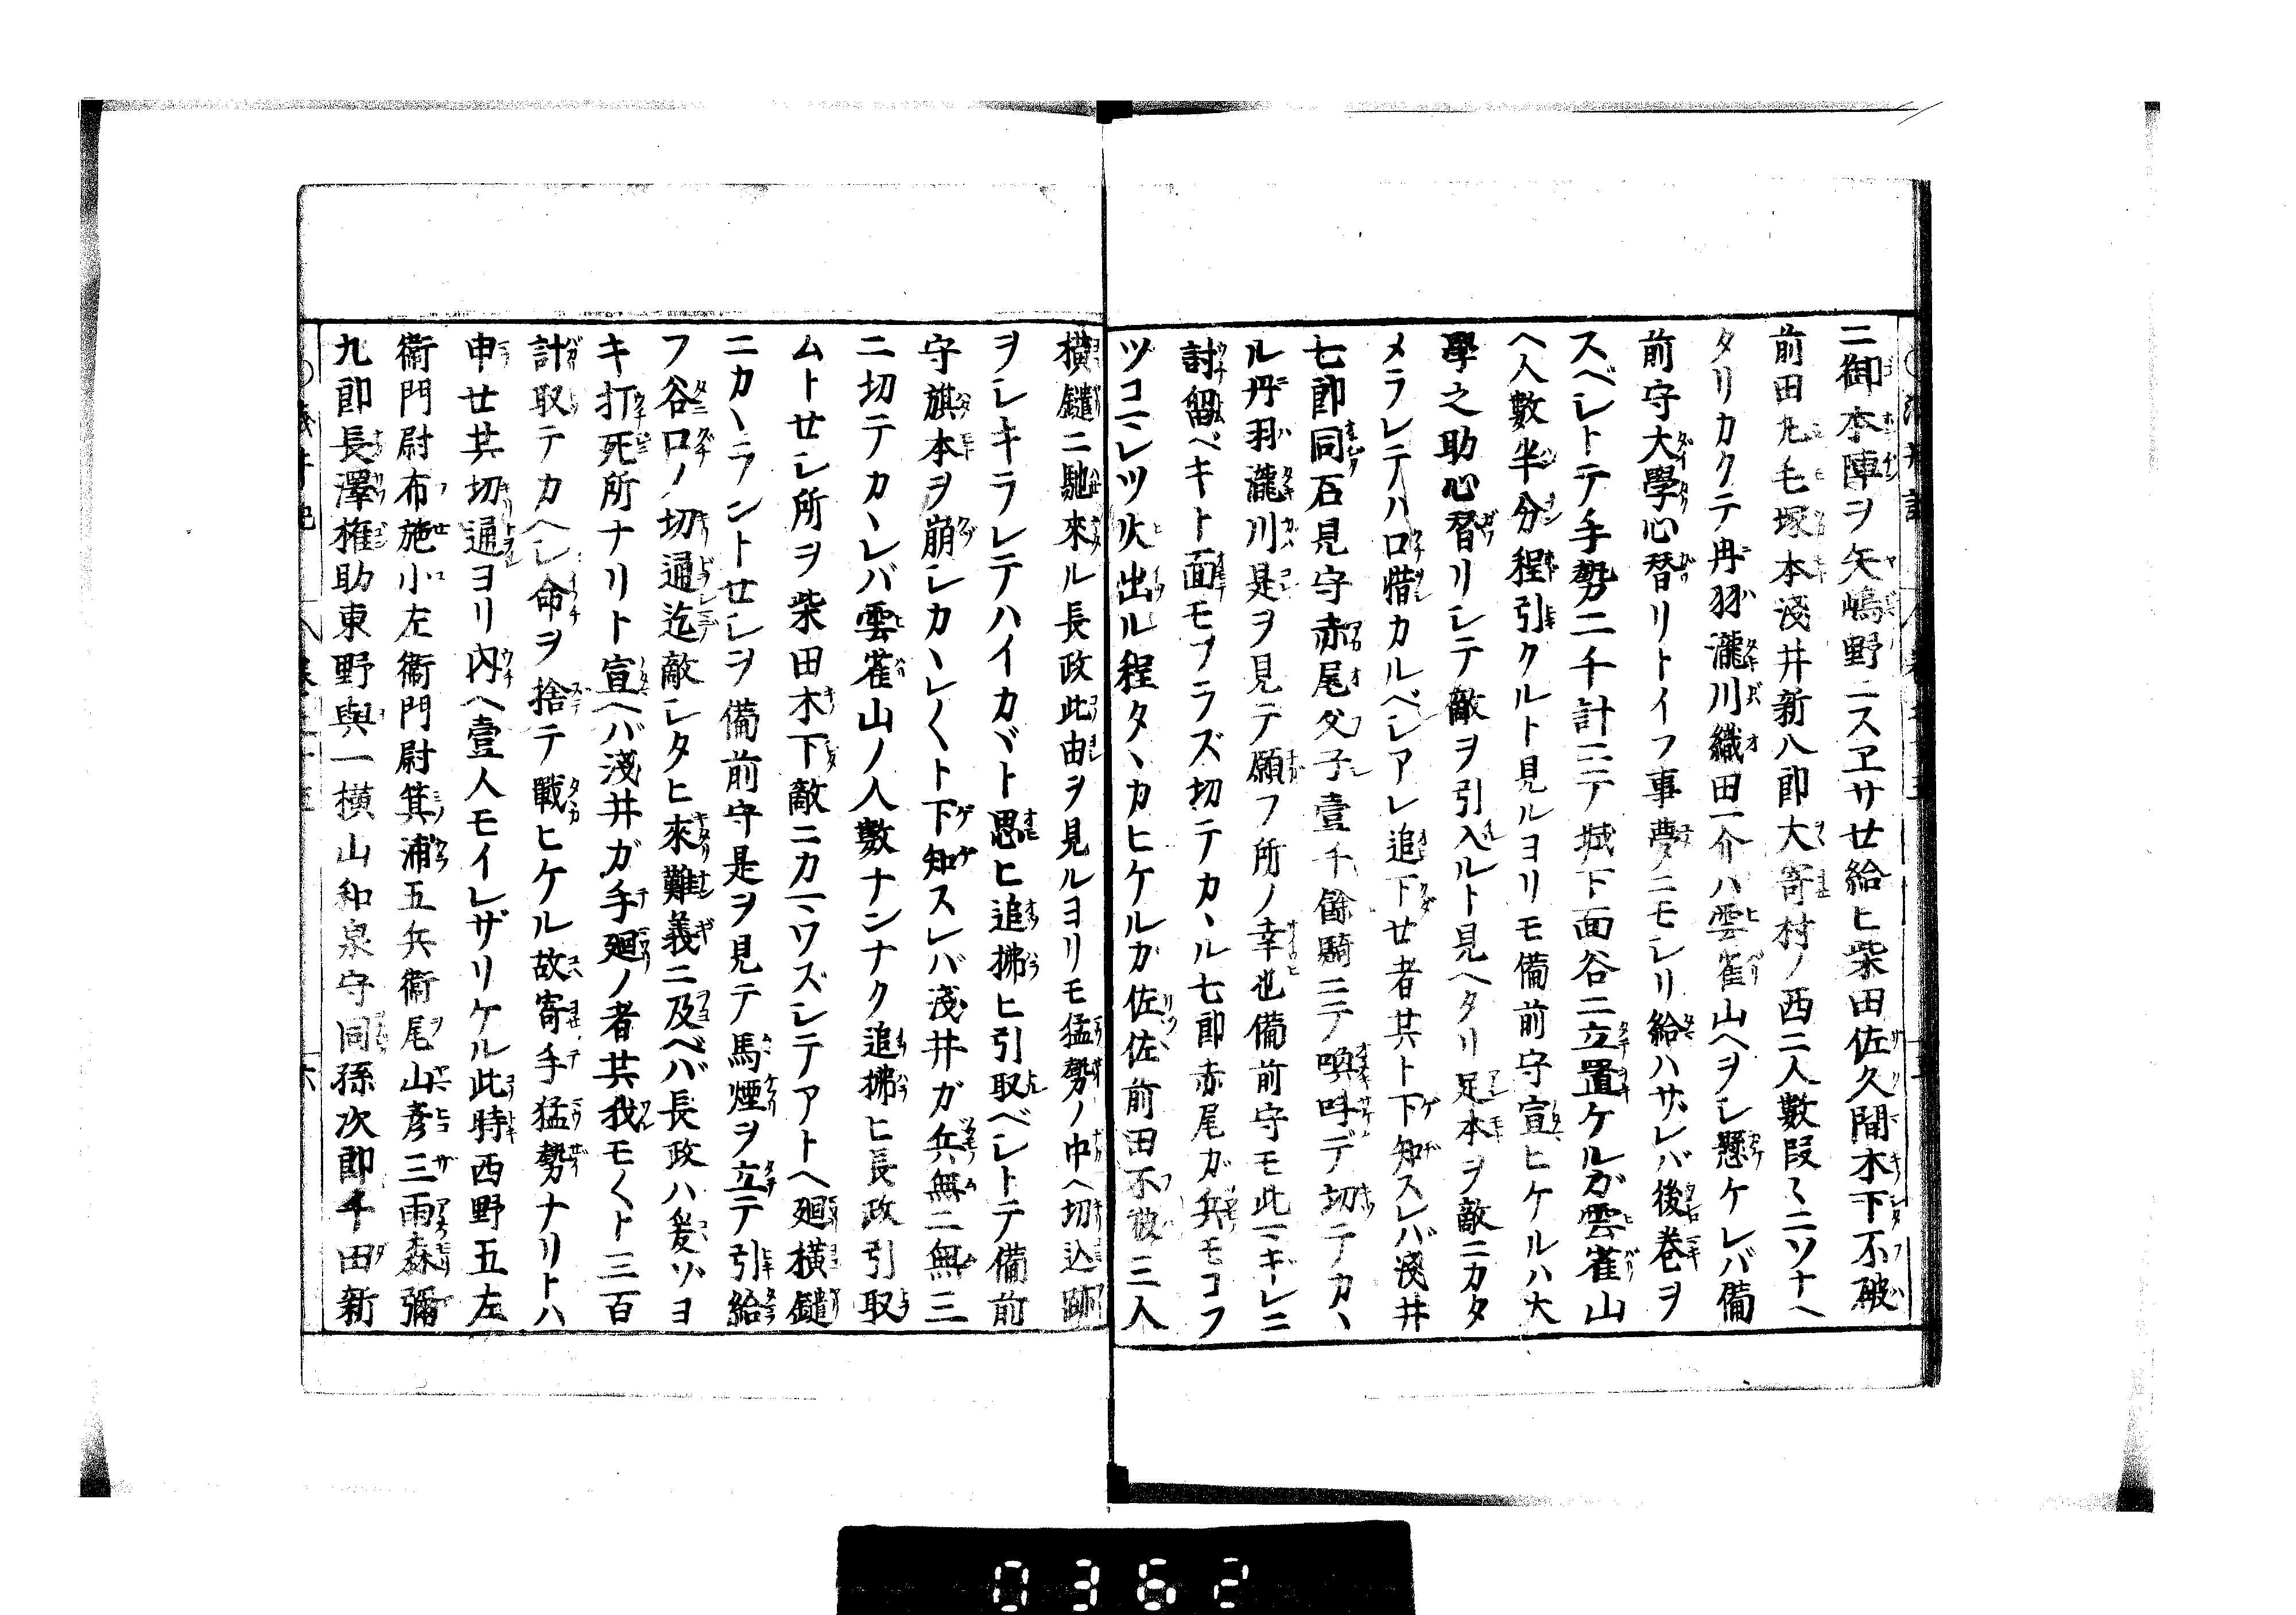 ニ御本陣ヲ矢嶋野ニスヱサセ給ヒ柴田佐久間木下不破
前田丸毛塚本淺井新八郎大寄村ノ西ニ人數段〻ニソナヘ
タリカクテ丹羽瀧川織田一介ハ雲雀山ヘヲシ懸ケレバ備
前守大學心替リトイフ事夢ニモシリ給ハサレバ後巻ヲ
スベシトテ手勢二千計ニテ城下面谷ニ立置ケルガ雲雀山
ヘ人數半分程引クルト見ルヨリモ備前守宣ヒケルハ大
學之助心替リシテ敵ヲ引入ルト見ヘタリ足本ヲ敵ニカタ
メラレテハ口惜カルベシアレ追下セ者共ト下知スレバ淺井
七郎同石見守赤尾父子壹千餘騎ニテ喚叫デ切テカヽ
ル丹羽瀧川是ヲ見テ願フ所ノ幸也備前守モ此ミギレニ
討留ベキト面モフラズ切テカヽル七郎赤尾ガ兵モコフ
ツコミシツ火出ル程タヽカヒケルガ佐佐前田不破三人
横鑓ニ馳來ル長政此由ヲ見ルヨリモ猛勢ノ中ヘ切込跡
ヲシキラレテハイカヾト思ヒ追拂ヒ引取ベシトテ備前
守旗本ヲ崩シカヽレ〱ト下知スレバ淺井ガ兵無二無三
ニ切テカヽレバ雲雀山ノ人數ナンナク追拂ヒ長政引取
ムトセシ所ヲ柴田木下敵ニカマワズシテアトヘ廻横鑓
ニカヽラントセシヲ備前守是ヲ見テ馬煙ヲ立テ引給
フ谷口ノ切通迄敵シタヒ來難義ニ及ベバ長政ハ爰ゾヨ
キ打死所ナリト宣ヘバ淺井ガ手廻ノ者共我モ〱ト三百
計取テカヘシ命ヲ捨テ戰ヒケル故寄手猛勢ナリトハ
申セ共切通ヨリ内ヘ壹人モイレザリケル此時西野五左
衞門尉布施小左衞門尉箕浦五兵衞尾山彥三雨森彌
九郎長澤権助東野與一横山和泉守同孫次郎千田新
0362